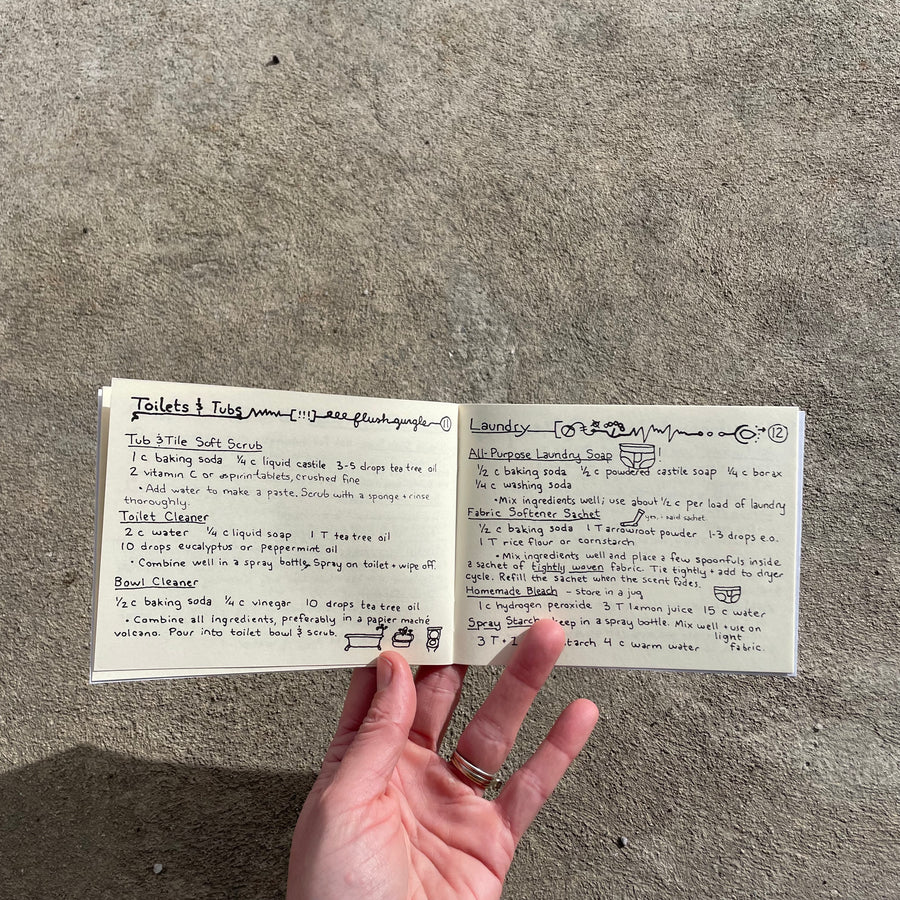 Toilets & Tubs [!!!] flush gurgle 11
Tub & Tile Soft Scrub
1 c baking soda ¼ c liquid castile 3-5 drops tea tree oil
2 vitamin C or aspirin tablets, crushed fine
• Add water to make a paste. Scrub with a sponge + rinse
thoroughly.
Toilet Cleaner
2 c water ¼ c liquid soap 1 T tea tree oil
10 drops eucalyptus or peppermint oil
• Combine well in a spray bottle. Spray on toilet + wipe off.
Bowl Cleaner
½ c baking soda ¼ c vinegar 10 drops tea tree oil
• Combine all ingredients, preferably in a papier maché
volcano. Pour into toilet bowl & scrub.
Laundry 12
All-Purpose Laundry Soap !
½ c baking soda ½ c powdered castile soap ¼ c borax
¼ c washing soda
• Mix ingredients well; use about ½ c per load of laundry
Fabric Softener Sachet yes, i said sachet.
½ c baking soda 1 T arrowroot powder 1-3 drops e.o.
1 T rice flour or cornstarch
• Mix ingredients well and place a few spoonfuls inside
a sachet of tightly woven fabric. Tie tightly + add to dryer
cycle. Refill the sachet when the scent fades.
Homemade Bleach - store in a jug
1 c hydrogen peroxide 3 T lemon juice 15 c water
Spray Starch keep in a spray bottle. Mix well + use on
light
fabric.
3 T + 1 starch 4 c warm water